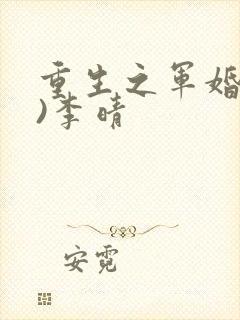 重生之军婚
)李晴
安霓